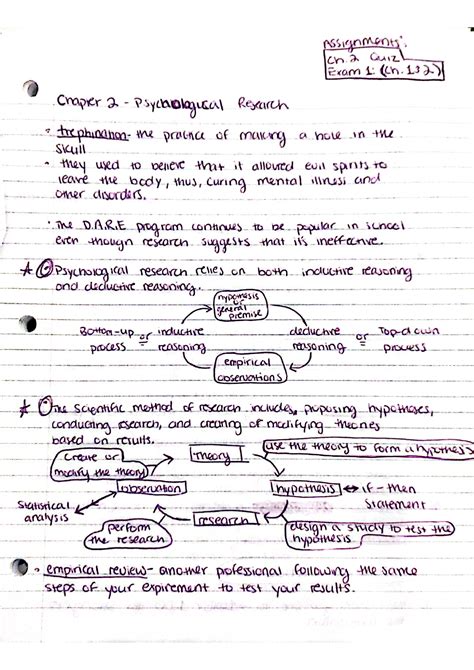 Assignments:
Ch. 2 Quiz
Exam 1: (Ch. 1 & 2)
Chapter 2 - Psychological Research
• trephination - the practice of making a hole in the
skull
• they used to believe that it allowed evil spirits to
leave the body, thus, curing mental illness and
other disorders.
• The D.A.R.E program continues to be popular in school
even though research suggests that it's ineffective.
Psychological research relies on both inductive reasoning
and deductive reasoning.
hypothesis
or
general
premise
Bottom-up or inductive deductive or Top-down
process reasoning reasoning process
empirical
observations
The scientific method of research includes, proposing hypotheses,
conducting research, and creating of modifying theories
based on results.
use the theory to form a hypothesis
create or
modify the theory
theory
observation
hypothesis ↔ if - then
statement
statistical
analysis
research
perform
the research
design a study to test the
hypothesis
• empirical review - another professional following the same
steps of your expirement to test your results.